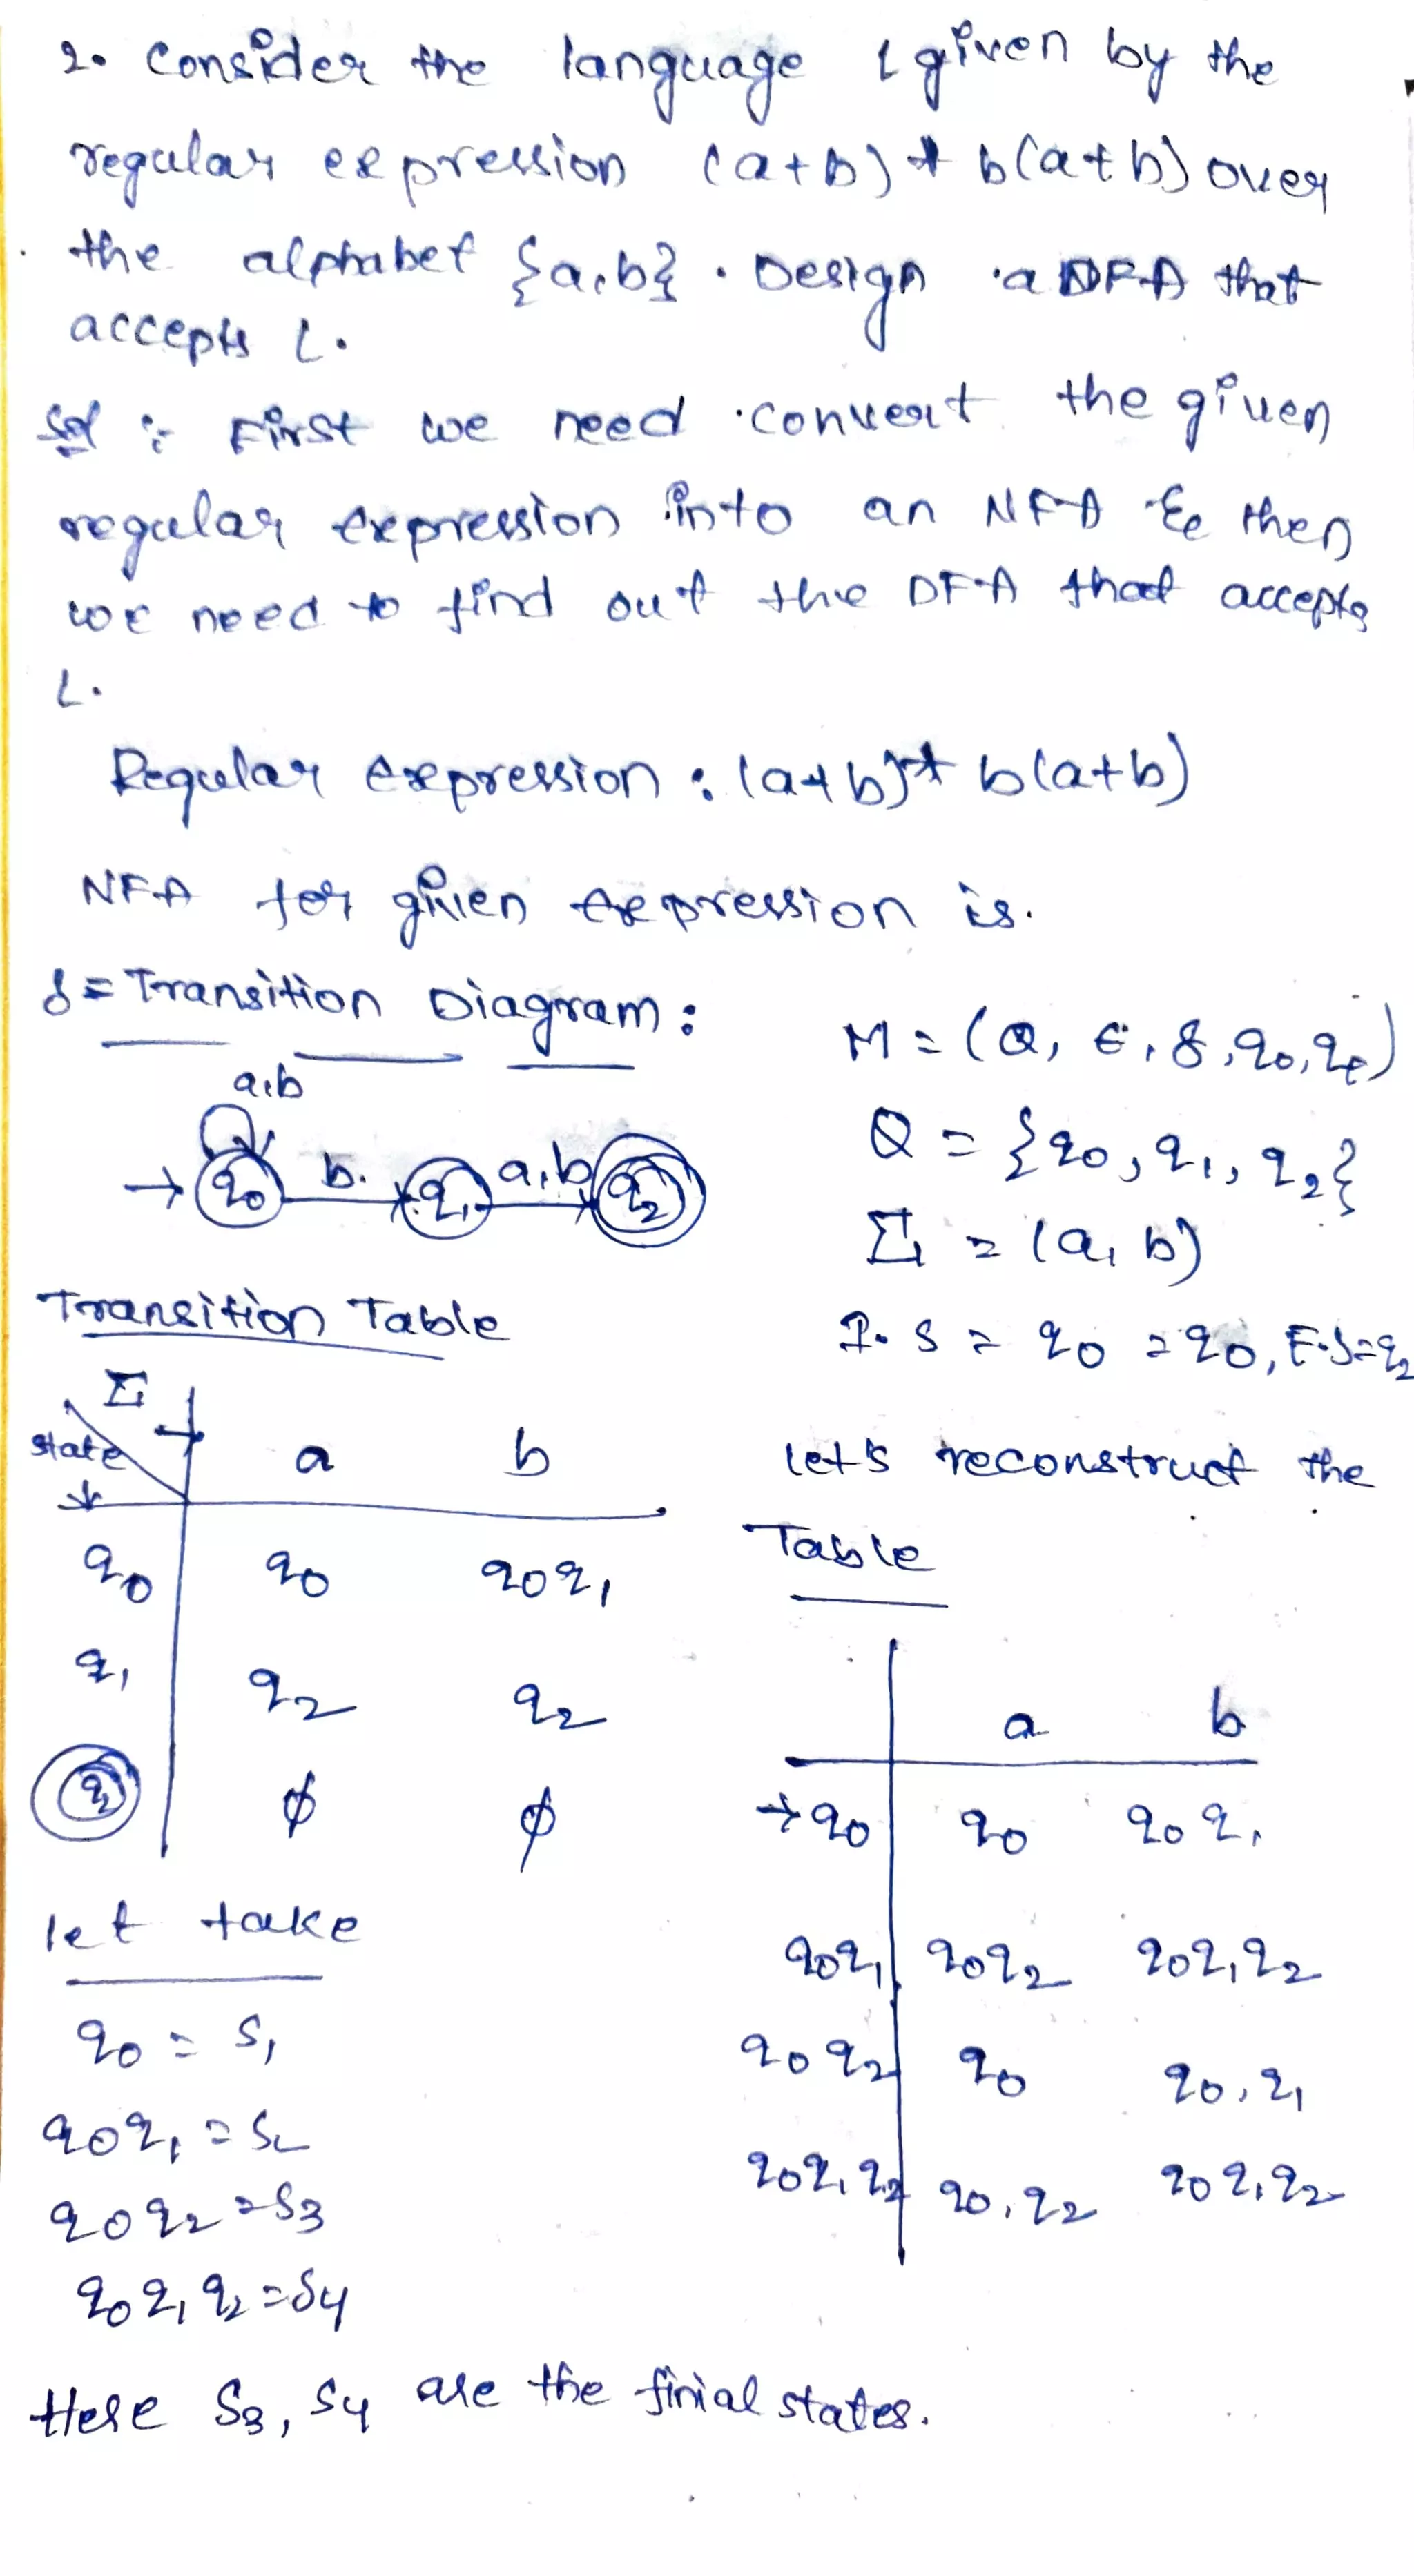 2. Consider the language L given by the
regular expression (a+b)* b(a+b) over
the alphabet {a,b}. Design a DFA that
accepts L.
Sol :- First we need convert the given
regular expression into an NFA & then
we need to find out the DFA that accepts
L.
Regular expression : (a+b)* b(a+b)
NFA for given expression is.
δ = Transition Diagram :
a,b
→ q0 b. q1 a,b q2
M = (Q, ε, δ, q0, qf)
Q = {q0, q1, q2}
Σ = (a, b)
I. S = q0 = q0, F.S = q2
Transition Table
Σ →
state ↓ a b
q0 q0 q0q1
q1 q2 q2
q2 ϕ ϕ
let's reconstruct the
Table
a b
→ q0 q0 q0q1
q0q1 q0q2 q0q1q2
q0q2 q0 q0,q1
q0q1q2 q0,q2 q0q1q2
let take
q0 = S1
q0q1 = S2
q0q2 = S3
q0q1q2 = S4
Here S3, S4 are the finial states.